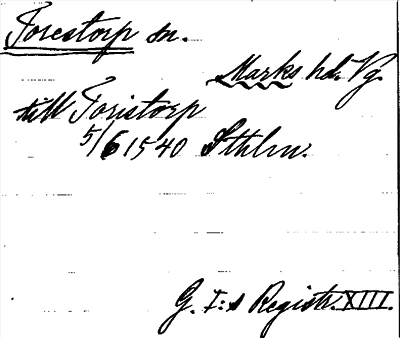 Torestorp sn.
Marks hd. Vg.
till Toristorp
5/6 1540 Sthlm.
G. I:s Registr. XIII.